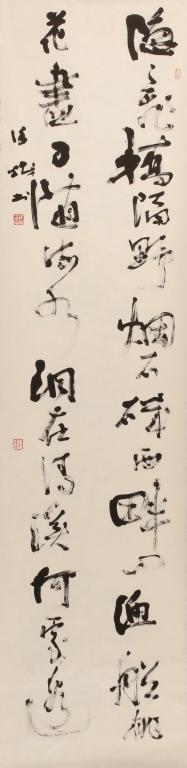 隱〻飛橋隔野烟石磯西畔问渔船桃
花盡日隨流水洞在清溪何處邊